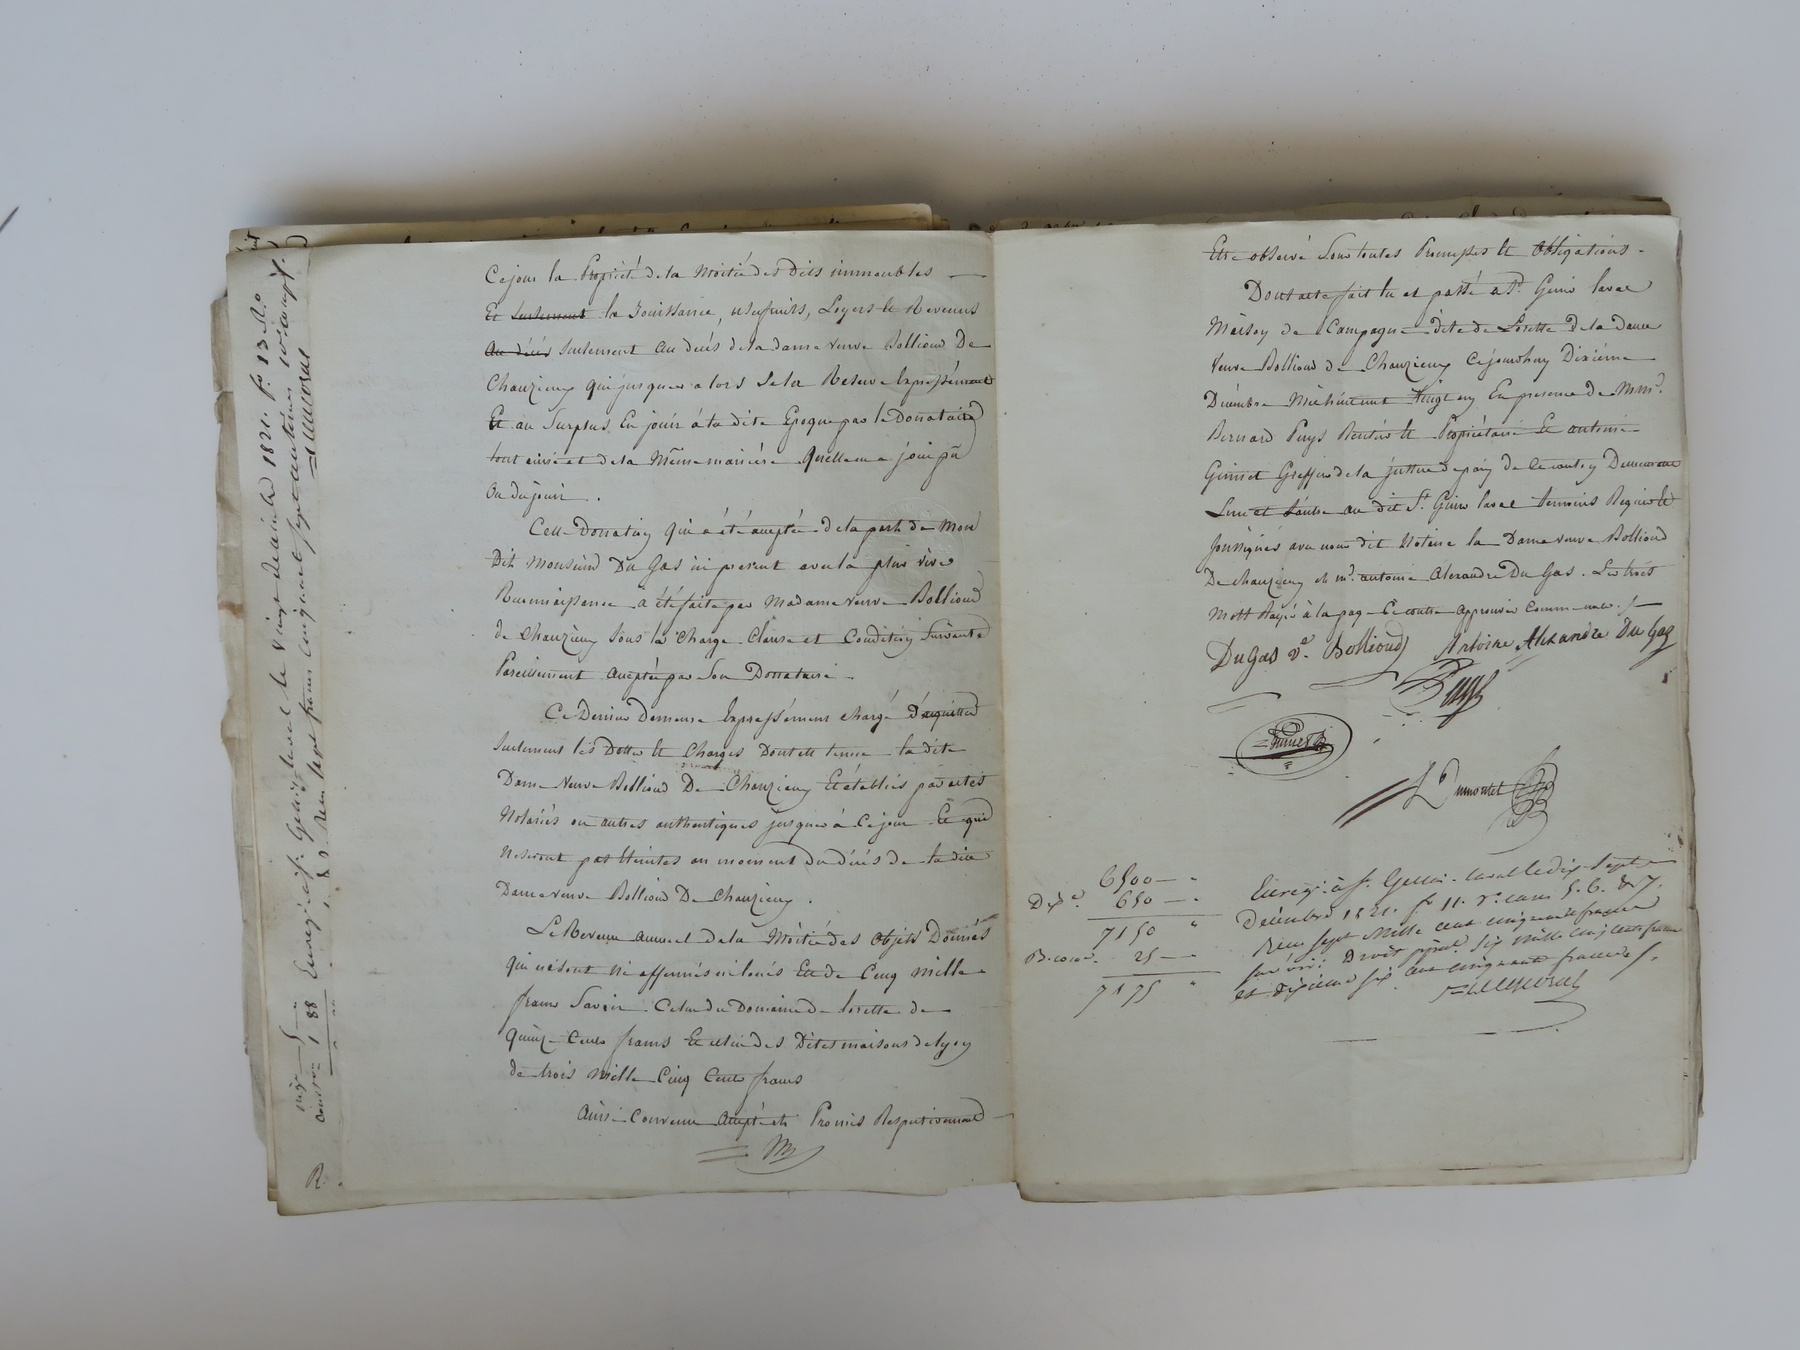 Ce jour la Propriété de la Moitié des Dits immeubles
Et seulement la Jouissance, usufruits, Loyers et Revenus
au décés seulement au decés de la dame veuve Bollioud De
Chanzieux qui jusques a lors se la Reserve Expressément
Et au Surplus En jouir à la dite Epoque par le Donataire
tout ainsi et de la Même maniére quelle en a joui pû
Ou du jouir.
Cette Donation qui a été acceptée de la part de Mon
Dit Monsieur Du Gas ici present avec la plus vive
Reconnaissance a été faite par Madame veuve Bollioud
de Chanzieux sous la Charge Clause et Condition Suivante
Pareillement acceptée par Son Donataire.
Ce Dernier Demeure Expressément chargé D'acquitter
Seulement les Dettes et Charges Dont est tenue la dite
Dame Veuve Bollioud De Chanzieux Et établies par actes
Notariés ou autres authentiques jusques à Ce jour Et qui
Ne seront pas Eteintes au moment du décés de la dite
Dame veuve Bollioud De Chanzieux.
Le Revenu annuel de la Moitié des Objets Donnés
qui ne sont ni affermés ni loués Est de Cinq mille
francs Savoir Celui du Domaine de lorette de
Quinze Cents francs Et celui des Dites maisons de lyon
de trois Mille Cinq Cents francs
Ainsi Convenu accepté et Promis Respectivement
Etre observé Sous toutes Promesses et Obligations.
Dont acte fait lu et passé a St. Genis laval
Maison de Campagne dite de Lorette de la Dame
Veuve Bollioud de Chanzieux Cejourdhuy Dixiéme
Décembre Mil huit cent Vingt un En presence de Mrs.
Bernard Puys Rentier et Propriétaire Et antoine
Guinet Greffier de la justice de paix de ce canton Demeurant
L'un et l'autre au dit St. Genis laval temoins Requis et
Soussignés avec nous dit Notaire la Dame veuve Bollioud
De chanzieux et mr. antoine Alexandre Du Gas. Les trois
Mots Rayés à la page Ci contre approuvés Comme nuls.
DuGas ve. Bollioud Antoine Alexandre Du Gaz
Puys
Guinet
Dumortet
6500 —
650 —
7150 "
25 —
7175 "
Enregt. à St. Genis Laval le dix-Sept
Décembre 1821. fo 11. Vo. cases 5. 6. & 7.
Reçu Sept Mille cent cinquante francs
Six mille cinq cents francs
et dixieme Six cent cinquante francs
Enregt. à St. Genis Laval le Vingt Decembre 1821. fo. 13 Ro.